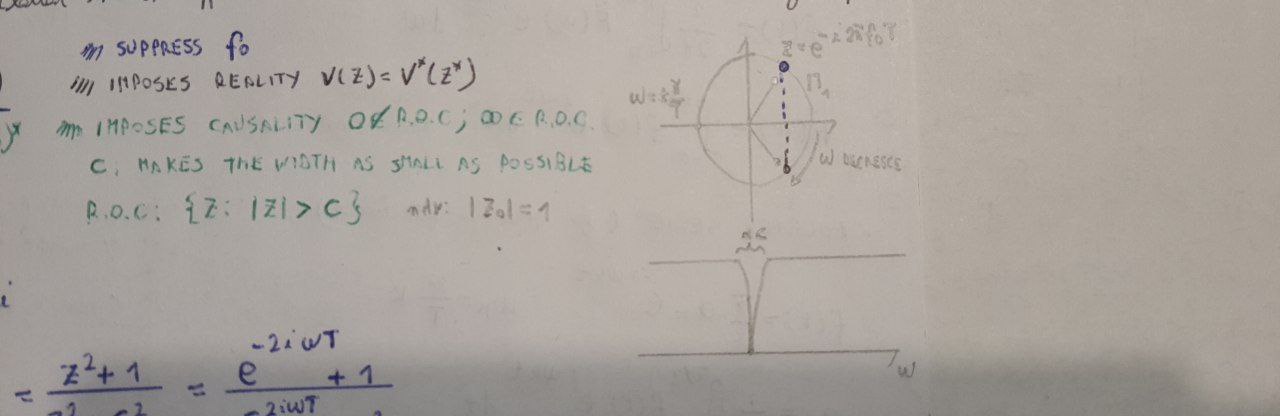 SUPPRESS f₀
IMPOSES REALITY V(Z) = V*(Z*)
IMPOSES CAUSALITY 0∉ R.O.C; ∞∈ R.O.C.
C: MAKES THE WIDTH AS SMALL AS POSSIBLE
R.O.C: {Z: |Z| > C} |Z₀| = 1
Z = e^{-i2πf₀T}
ω DECRESCE
ω
= (Z² + 1) / = (e^{-2iωT} + 1) /